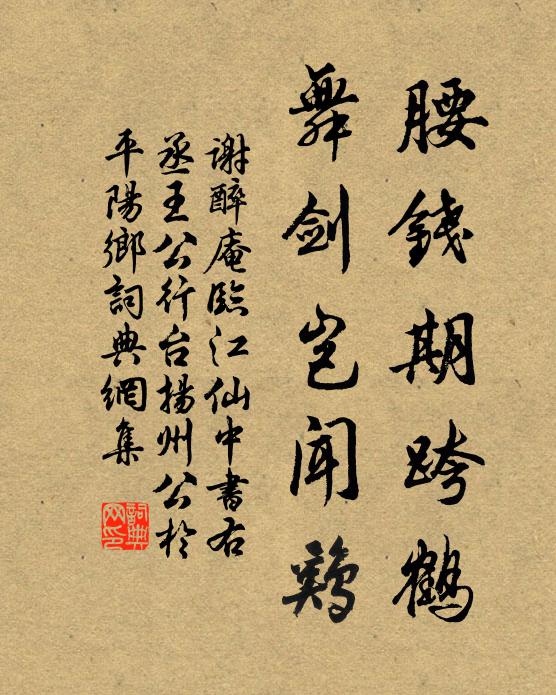 腰錢期跨鶴
舞劍豈聞鷄
謝醉庵臨江仙中書右
丞王公行台揚州公於
平陽鄉詞典網集
詞典網印